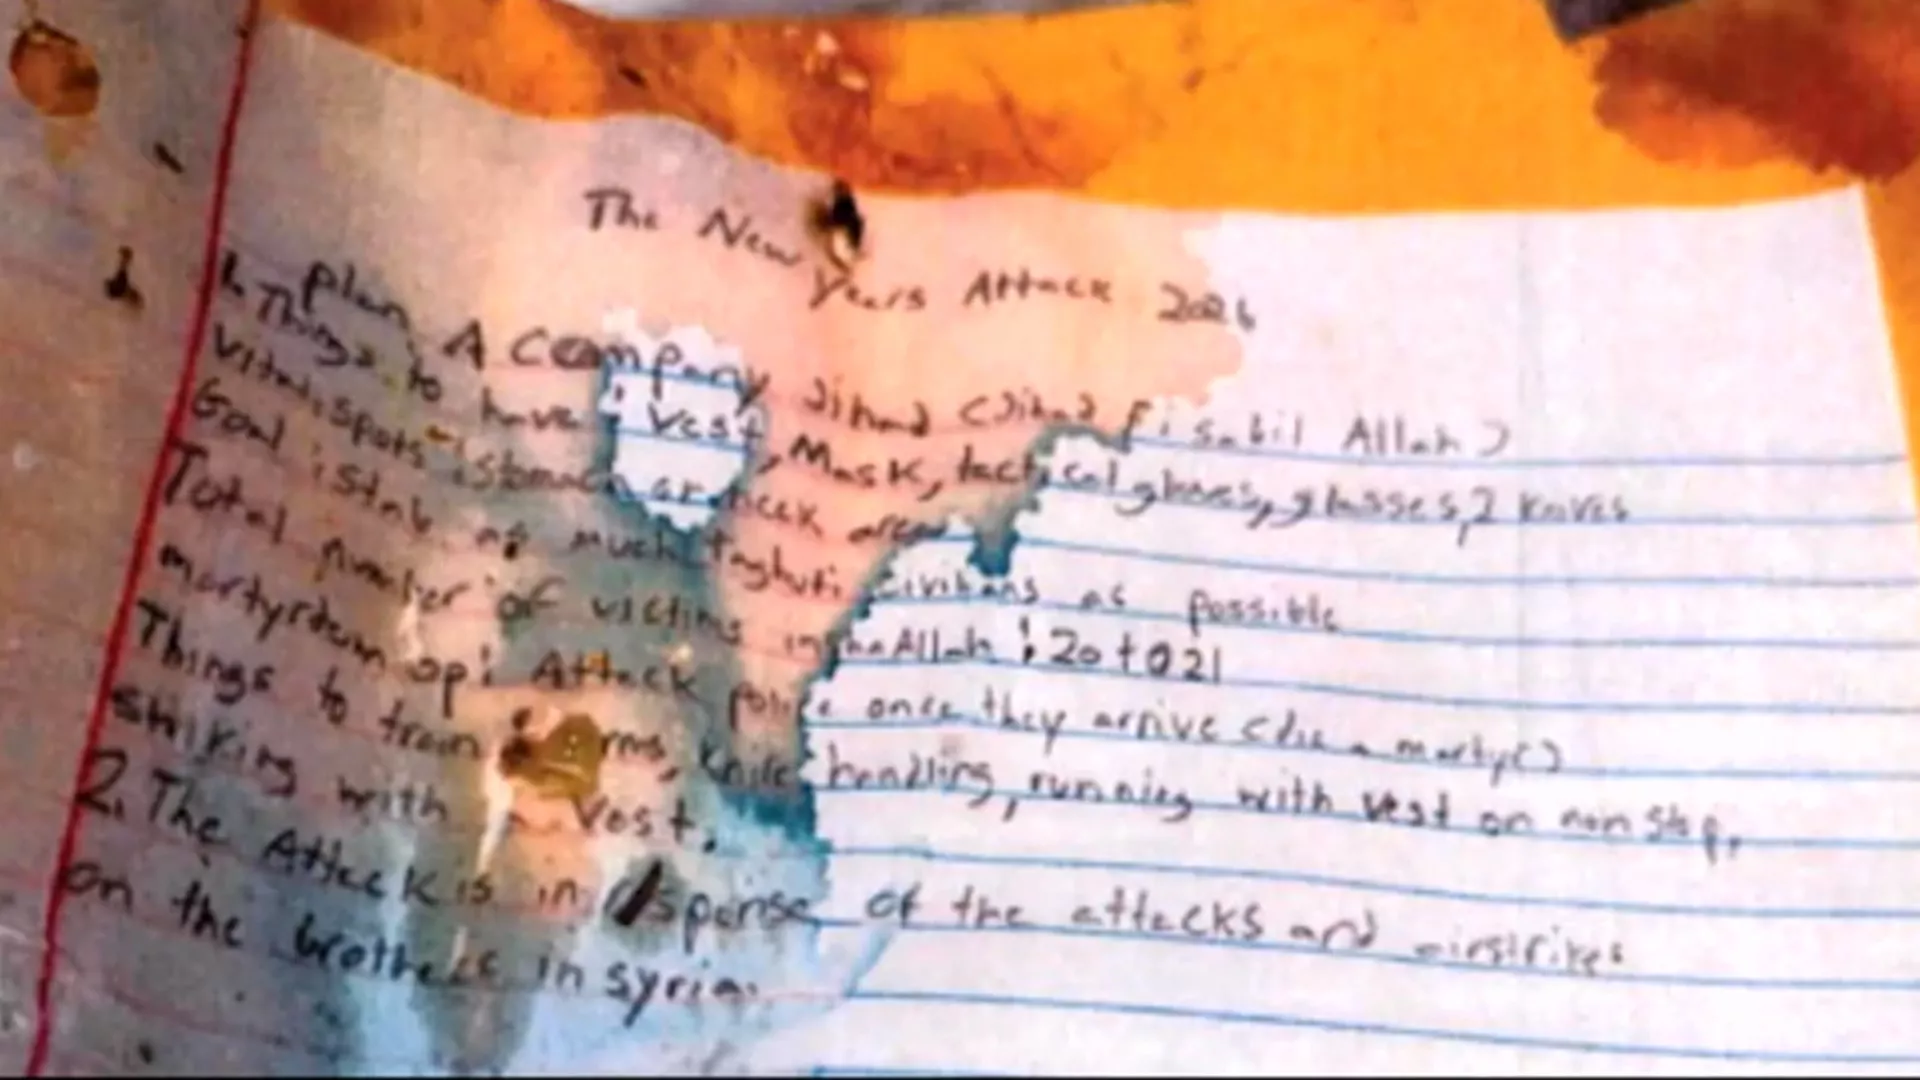 The New Years Attack 2026
plan A Company Jihad (Jihad Fi sabil Allah)
1. Things to have : vest, Mask, tactical gloves, glasses, 2 knives
vital spots : stomach or neck area
Goal : stab as much taghuti civilians as possible
Total number of victims inshaAllah : 20 to 21
martyrdom op : Attack police once they arrive (die a martyr)
Things to train : rms, knife handling, running with vest on non stop,
striking with vest.
2. The Attack is in of the attacks and airstrikes
on the brothers in syria.